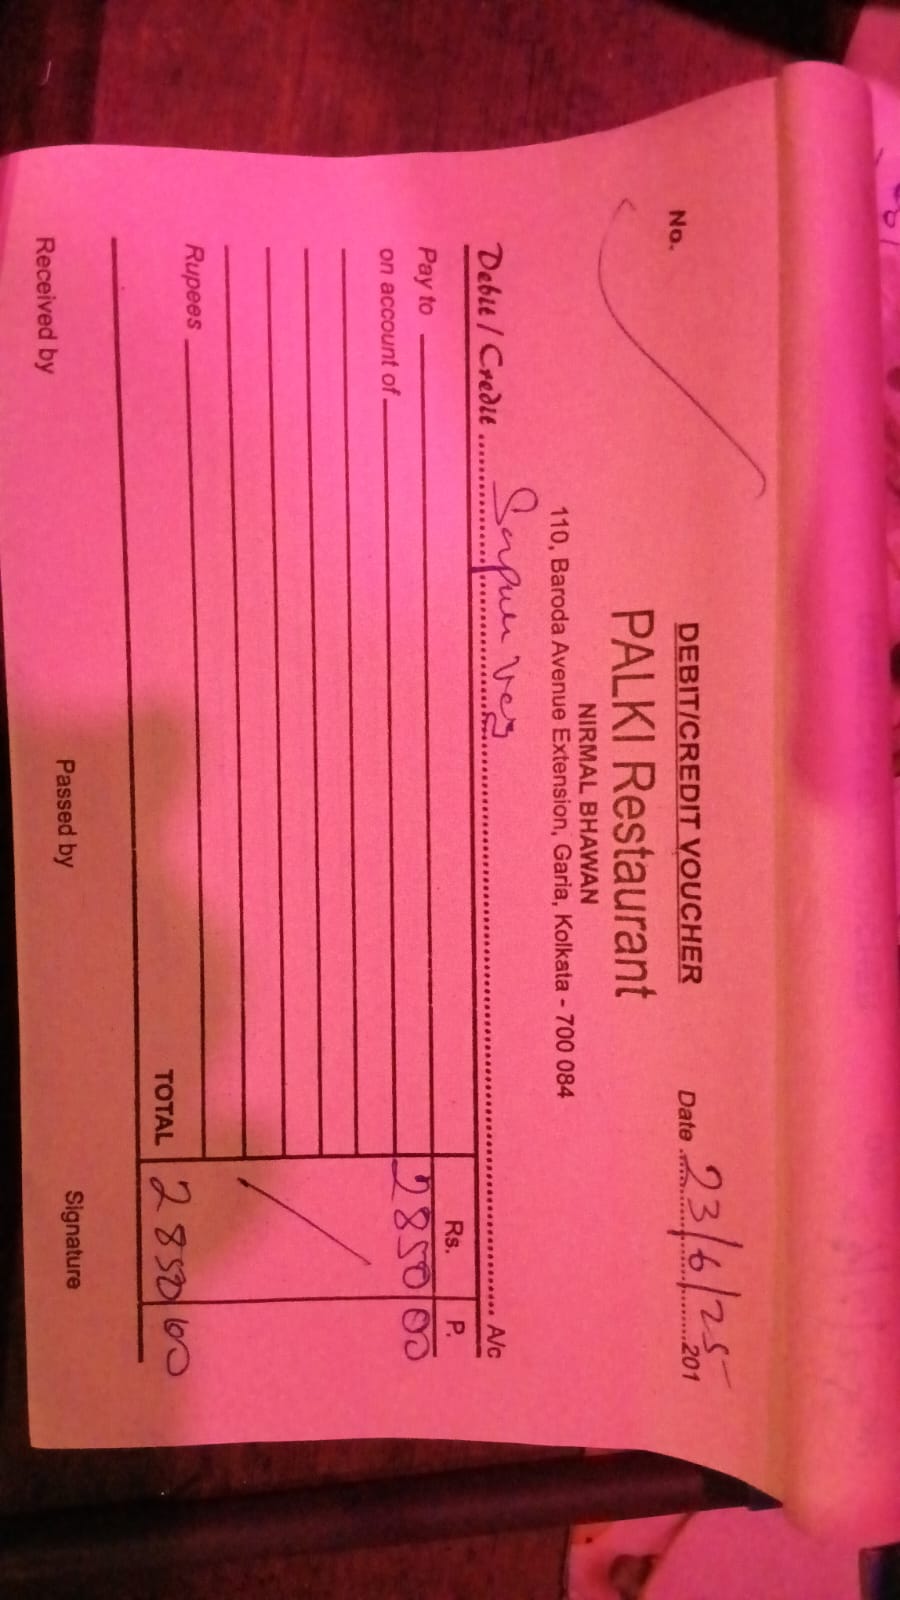 No.
DEBIT/CREDIT VOUCHER
Date 23/6/25 201
PALKI Restaurant
NIRMAL BHAWAN
110, Baroda Avenue Extension, Garia, Kolkata - 700 084
Debit / Credit ............ Veg ............ A/c
Rs. P.
Pay to
2850 00
on account of
Rupees
TOTAL 2850 00
Received by Passed by Signature